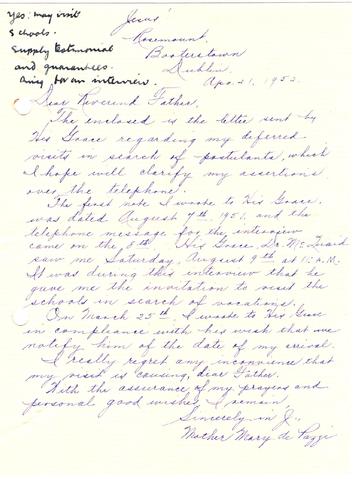 Yes: may visit
Schools.
Supply testimonial
and guarantees.
for an interview.
Jesus'
Rosemount,
Booterstown
Dublin.
Apr. 21, 1952.
Dear Reverend Father,
The enclosed is the letter sent by
His Grace regarding my deferred
visits in search of postulants, which
I hope will clarify my assertions
over the telephone.
The first note I wrote to His Grace,
was dated August 7th, 1951, and the
telephone message for the interview
came on the 8th. His Grace, Dr. McQuaid
saw me Saturday, August 9th at 11 A.M.
It was during this interview that he
gave me the invitation to visit the
schools in search of vocations.
On March 25th, I wrote to His Grace
in compliance with his wish that we
notify him of the date of my arrival.
I really regret any inconvience that
my visit is causing, dear Father.
With the assurance of my prayers and
personal good wishes, I remain,
Sincerely in J.,
Mother Mary de Pazzi